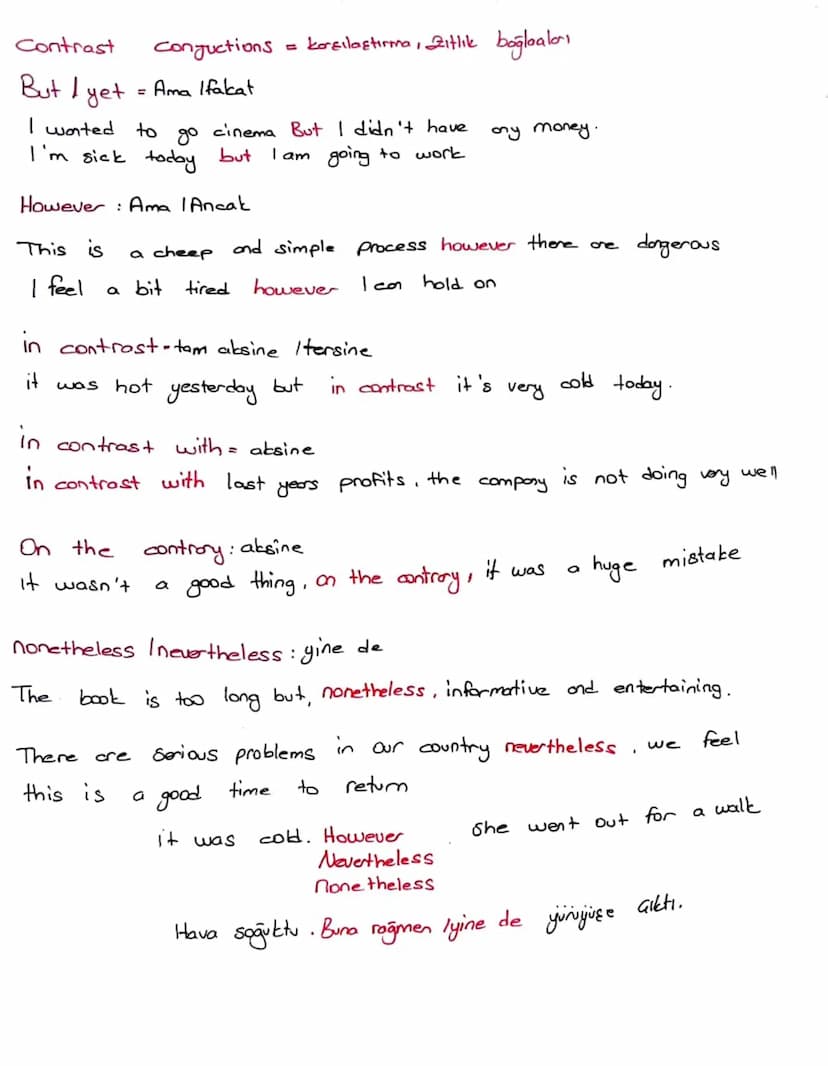 Contrast Conjuctions = karşılaştırma, Zıtlık bağlaçları
But / yet = Ama / fakat
I wanted to go cinema But I didn't have any money.
I'm sick today but I am going to work
However : Ama / Ancak
This is a cheap and simple process however there are dangerous
I feel a bit tired however I can hold on
in contrast - tam aksine / tersine
it was hot yesterday but in contrast it's very cold today.
in contrast with = aksine
in contrast with last years profits, the company is not doing very well
On the contrary : aksine
it wasn't a good thing, on the contrary, it was a huge mistake
nonetheless / nevertheless : yine de
The book is too long but, nonetheless, informative and entertaining.
There are serious problems in our country nevertheless, we feel
this is a good time to return
it was cold. However she went out for a walk
Nevertheless
Nonetheless
Hava soğuktu. Buna rağmen / yine de yürüyüşe çıktı.